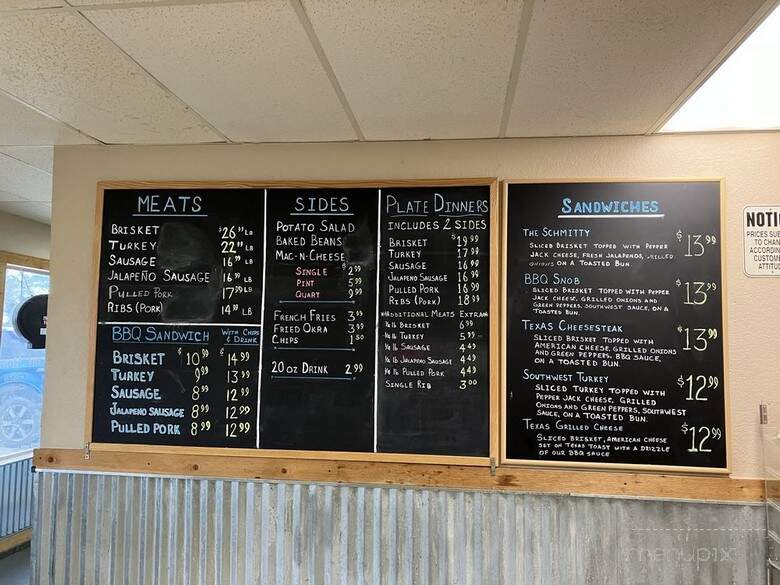 MEATS
BRISKET $26.99 LB
TURKEY 22.99 LB
SAUSAGE 16.99 LB
JALAPEÑO SAUSAGE 16.99 LB
PULLED PORK 17.99 LB
RIBS (PORK) 14.99 LB
BBQ SANDWICH WITH CHIPS & DRINK
BRISKET $10.99 $14.99
TURKEY 9.99 13.99
SAUSAGE 8.99 12.99
JALAPENO SAUSAGE 8.99 12.99
PULLED PORK 8.99 12.99
SIDES
POTATO SALAD
BAKED BEANS
MAC-N-CHEESE
SINGLE $2.99
PINT 5.99
QUART 9.99
FRENCH FRIES 3.99
FRIED OKRA 3.99
CHIPS 1.50
20 OZ DRINK 2.99
PLATE DINNERS
INCLUDES 2 SIDES
BRISKET $19.99
TURKEY 17.99
SAUSAGE 16.99
JALAPENO SAUSAGE 16.99
PULLED PORK 16.99
RIBS (PORK) 18.99
*ADDITIONAL MEATS EXTRA*
1/4 lb BRISKET 6.99
1/4 lb TURKEY 5.99
1/4 lb SAUSAGE 4.49
1/4 lb JALAPENO SAUSAGE 4.49
1/4 lb PULLED PORK 4.49
SINGLE RIB 3.00
SANDWICHES
THE SCHMITTY $13.99
SLICED BRISKET TOPPED WITH PEPPER
JACK CHEESE, FRESH JALAPENOS, GRILLED
ONIONS ON A TOASTED BUN.
BBQ SNOB $13.99
SLICED BRISKET TOPPED WITH PEPPER
JACK CHEESE, GRILLED ONIONS AND
GREEN PEPPERS, SOUTHWEST SAUCE, ON A
TOASTED BUN.
TEXAS CHEESESTEAK $13.99
SLICED BRISKET TOPPED WITH
AMERICAN CHEESE, GRILLED ONIONS
AND GREEN PEPPERS, BBQ SAUCE,
ON A TOASTED BUN.
SOUTHWEST TURKEY $12.99
SLICED TURKEY TOPPED WITH
PEPPER JACK CHEESE, GRILLED
ONIONS AND GREEN PEPPERS, SOUTHWEST
SAUCE, ON A TOASTED BUN.
TEXAS GRILLED CHEESE $12.99
SLICED BRISKET, AMERICAN CHEESE
SET ON TEXAS TOAST WITH A DRIZZLE
OF OUR BBQ SAUCE
NOTI
PRICES SUB
TO CHAN
ACCORDIN
CUSTOME
ATTITU
menupix